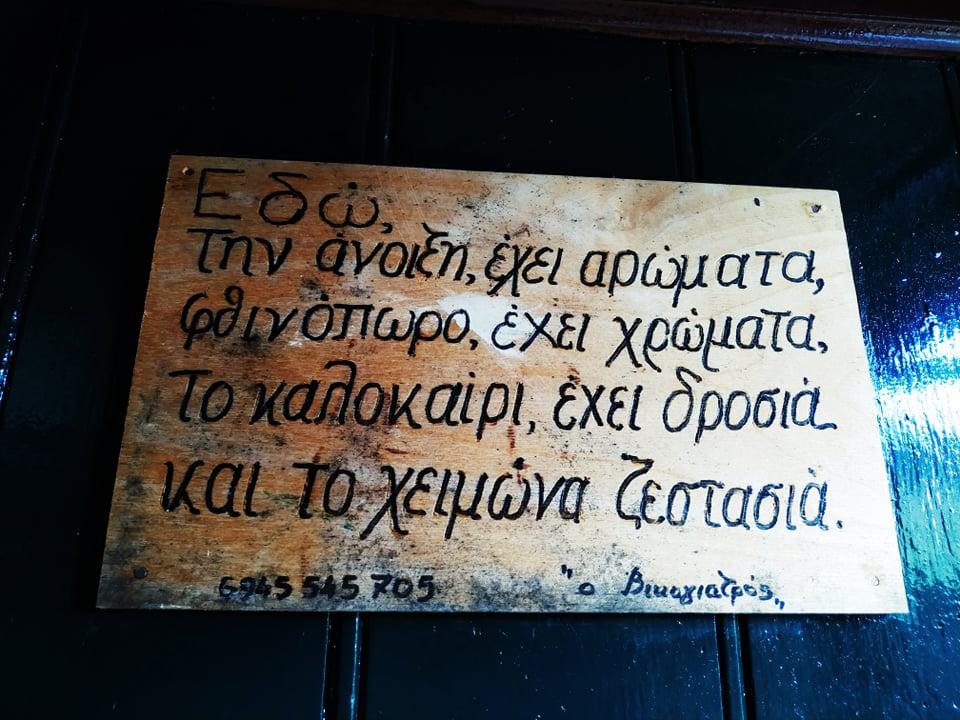 Εδώ,
Την άνοιξη, έχει αρώματα,
φθινόπωρο, έχει χρώματα,
Το καλοκαίρι, έχει δροσιά
και το χειμώνα ζεστασιά.
6945 545 705 "ο Βικογιατρός„